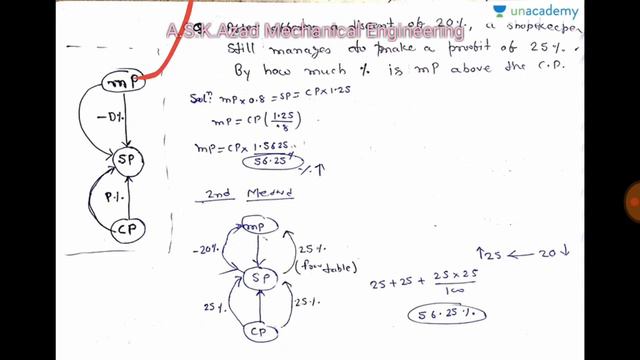 unacademy
A.S.K.Azad Mechanical Engineering
Q. After offering a discount of 20%, a shopkeeper
still manages to make a profit of 25%.
By how much % is MP above the C.P.
Solⁿ MP × 0.8 = SP = CP × 1.25
MP = CP (1.25/.8)
MP = CP × 1.5625
56.25% ↑
2nd Method
MP
-D%
SP
P%
CP
MP
-20%
25%
(from table)
SP
25%
25%
CP
↑25 ← 20↓
25 + 25 + 25 × 25 / 100
56.25%